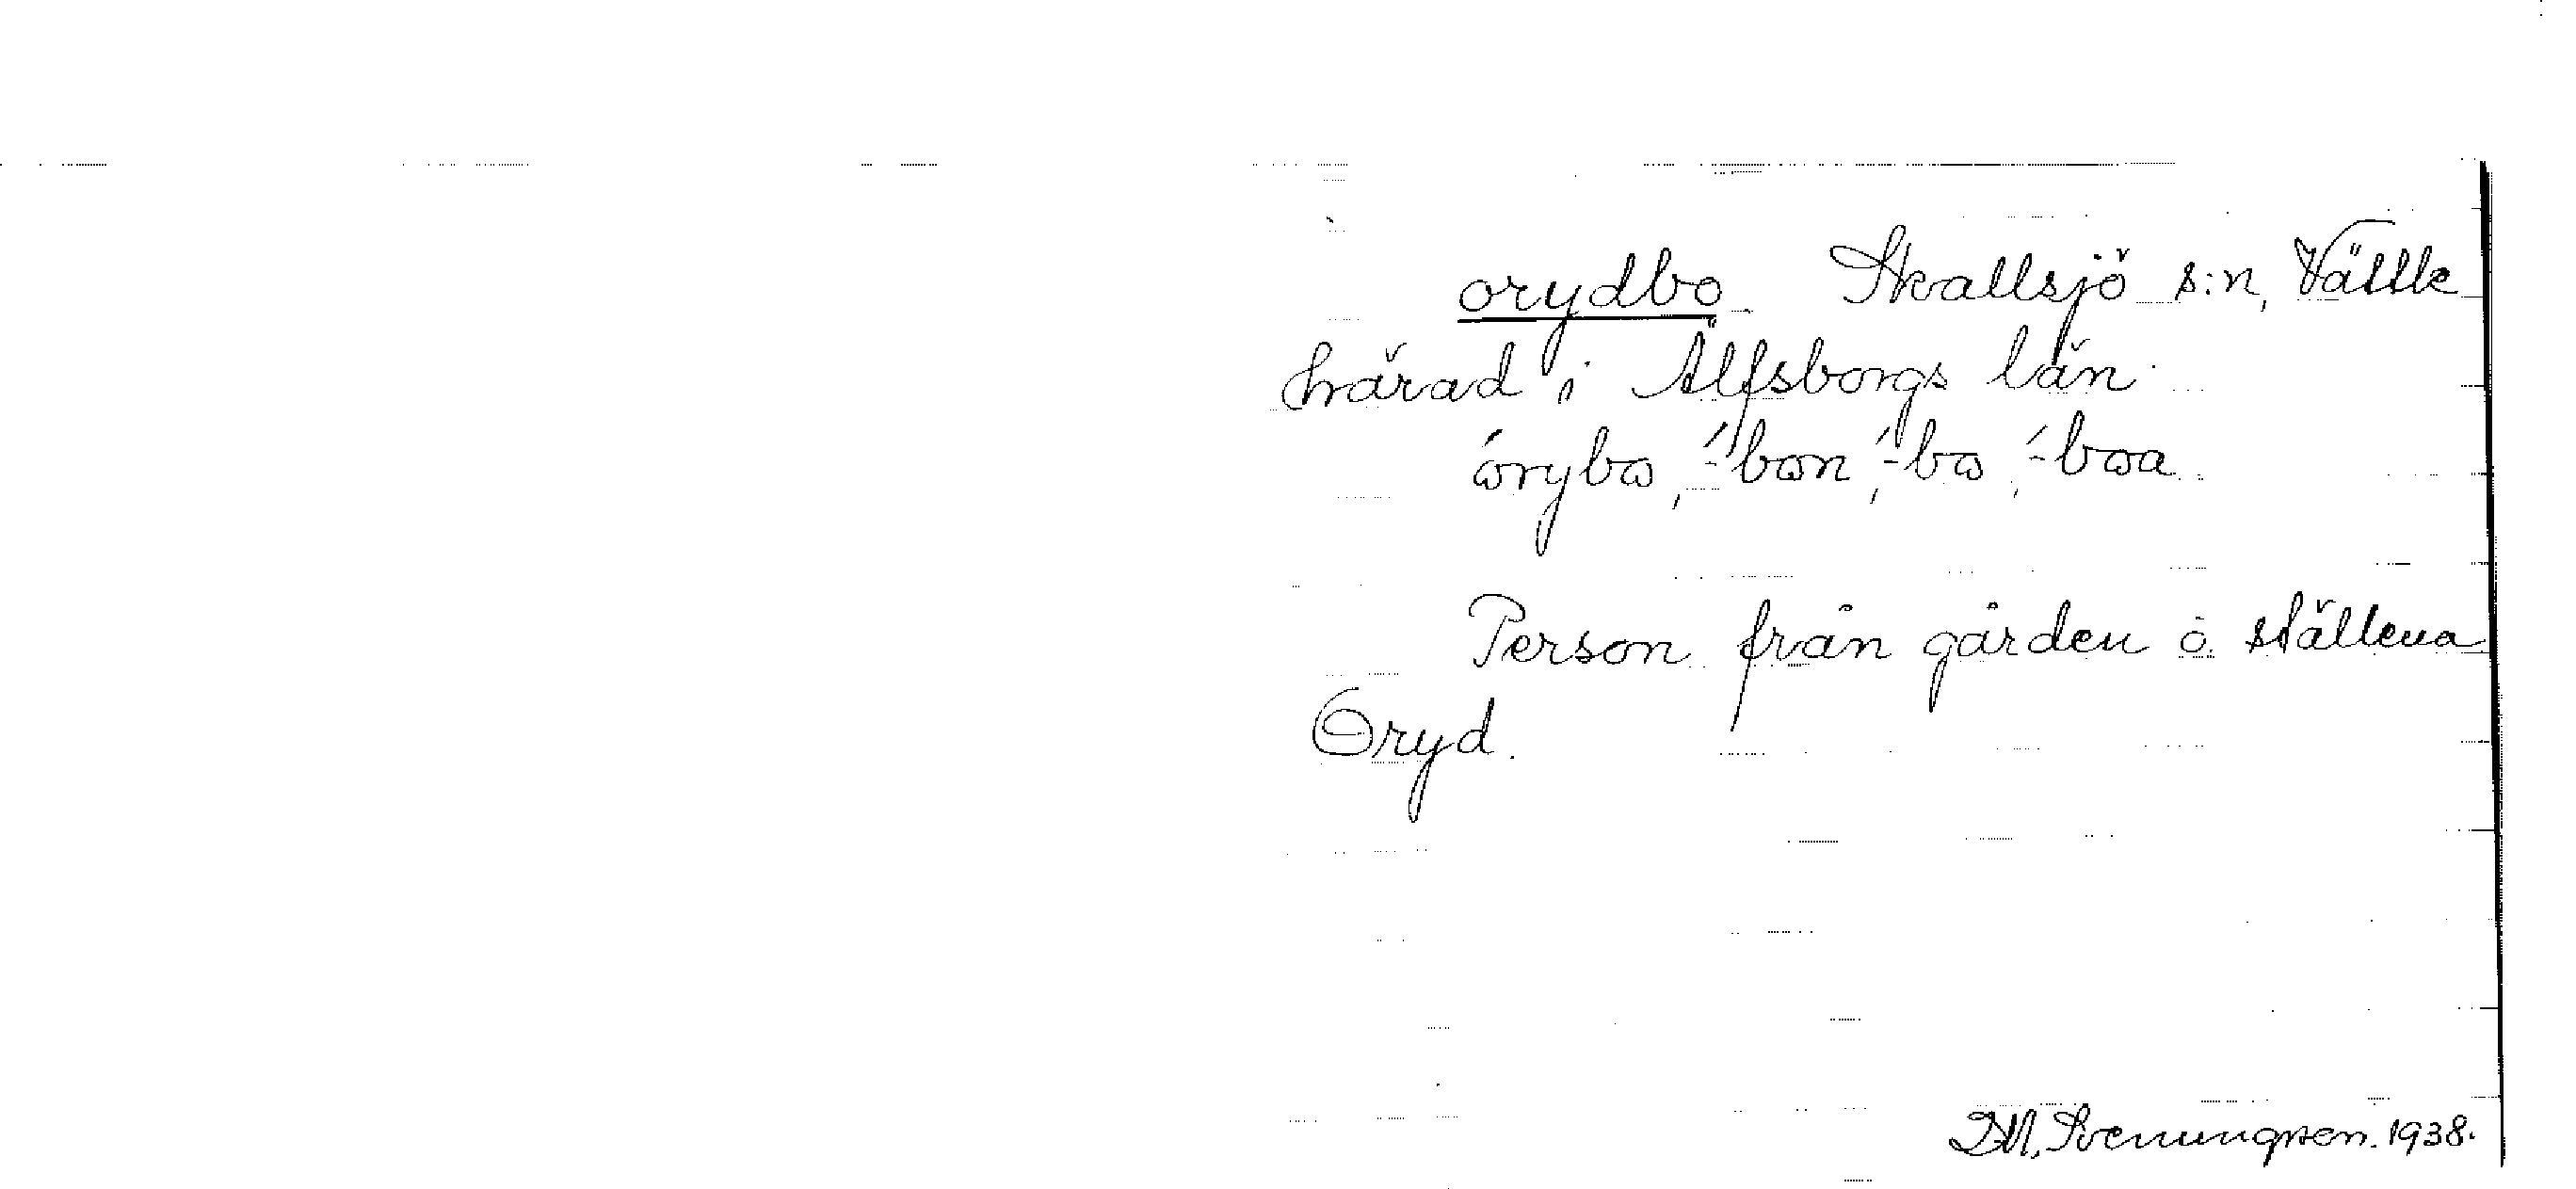 orydbo Skallsjö s:n, Vättle
härad i Älfsborgs län
órybo, -´bon, -´bo, -´boa.
Person från gården o. ställena
Oryd.
Svenungsson. 1938.